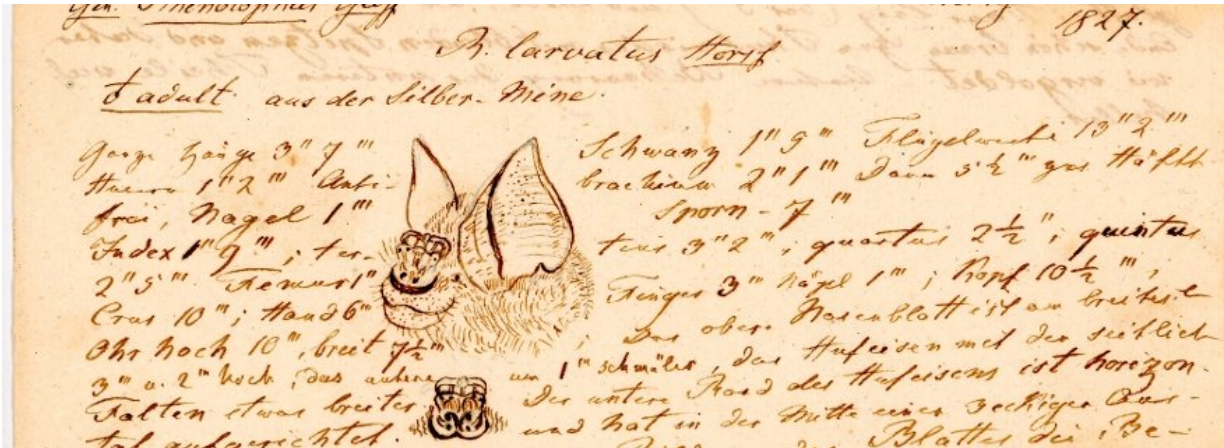 Gen. Rhinolophus Geoff
1827.
Rh. larvatus Horsf
♂ adult aus der Silber-Mine.
Ganze Länge 3" 7 ''' Schwanz 1" 5 ''' Flügelweite 13" 2 '''
Humero 1" 2 ''' Anti- brachium 2" 1 ''' Daum 5 ½ ''' zur Hälfte
frei, Nagel 1 ''' Sporn - 7 '''
Index 1" 9 ''' ; ter- tius 3" 2 ''' , quartus 2 ½ " ; quintus
2" 5 ''' Femur 1" Finger 3 ''' Nägel 1 ''' ; Kopf 10 ½ ''' ,
Crus 10 ''' ; Hand 6 ''' ; Das obere Nasenblatt ist am breitest
Ohr hoch 10 ''' , breit 7 ½ ''' um 1 ''' schmäler, das Hufeisen mit der seitlich
3 ''' u. 2 ''' hoch, das untere Der untere Rand des Hufeisens ist horizon-
Falten etwas breiter und hat in der Mitte einen 3eckigen
tal aufgerichtet. des Blattes die Be-